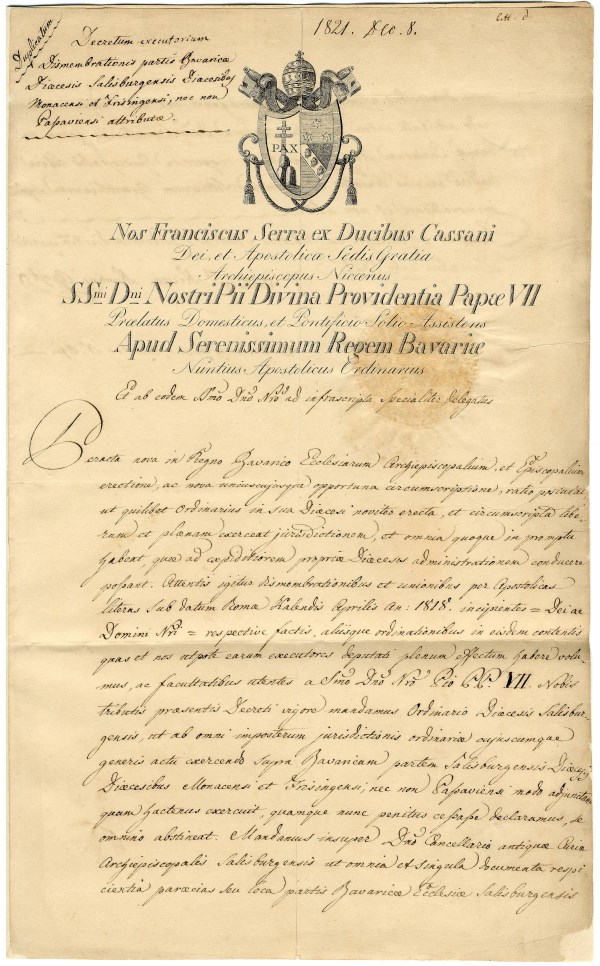 Duplicatum
Decretum executorium
Dismembrationis partis Bavaricæ
Diœcesis Salisburgensis Diœcesibus
Monacensi et Frisingensi, nec non
Passaviensi attributæ.
1821. Dec. 8.
Litt. d
PAX
Nos Franciscus Serra ex Ducibus Cassani
Dei, et Apostolicæ Sedis Gratia
Archiepiscopus Nicœnus
SSmi Dni Nostri Pii Divina Providentia Papæ VII
Prœlatus Domesticus, et Pontificio Solio Assistens
Apud Serenissimum Regem Bavariæ
Nuntius Apostolicus Ordinarius
Et ab eodem Smo Dno Nro ad infrascripta specialiter Delegatus
Peracta nova in Regno Bavarico Ecclesiarum Archiepiscopalium, et Episcopalium
erectione, ac nova uniuscujusque opportuna circumscriptione, ratio postulat
ut quilibet Ordinarius in sua Diœcesi noviter erecta, et circumscripta libe-
ram et plænam exerceat jurisdictionem, et omnia quoque in promptu
habeat, quæ ad expeditiorem propriæ Diœcesis administrationem conducere
possant. Attentis igitur dismembrationibus et unionibus per Apostolicas
literas sub datum Romæ Kalendis Aprilis An: 1818. incipientes = Dei ac
Domini Nri = respective factis, aliisque ordinationibus in eisdem contentis
quas et nos utpote earum executores deputati plenum effectum habere volu-
mus, ac facultatibus utentes a Smo Dno Nro Pio P.P. VII Nobis
tributis præsentis Decreti vigore mandamus Ordinario Diœcesis Salisbur-
gensis, ut ab omni imposterum jurisdictionis ordinariæ cujuscumque
generis actu exercendo supra Bavaricam partem Salisburgensis Diœcesis
Diœcesibus Monacensi et Frisingensi, nec non Passaviensi modo adjunctam
quam hactenus exercuit, quamque nunc penitus cessasse declaramus, se
omnino abstineat. Mandamus insuper Dno Cancellario antiquæ Curiæ
Archiepiscopalis Salisburgensis ut omnia et singula documenta respi-
cientia parœcias seu loca partis Bavaricæ Ecclesiæ Salisburgensis